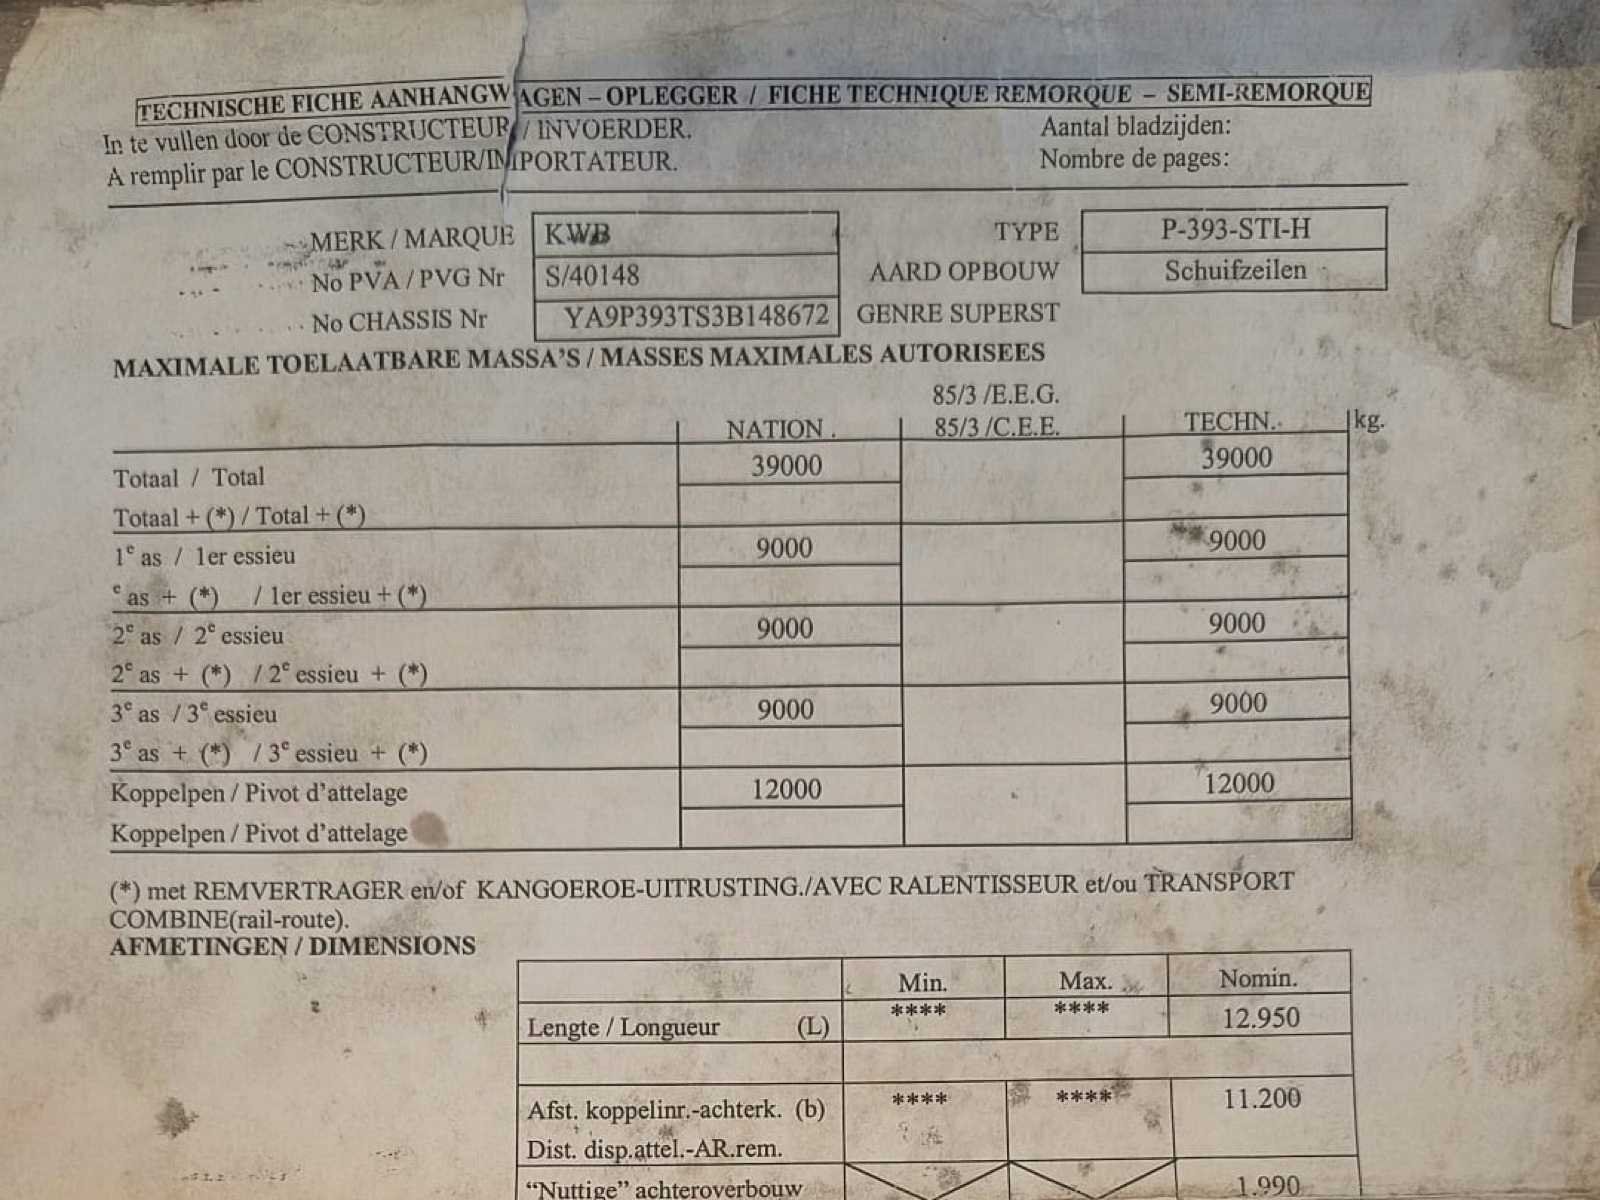 TECHNISCHE FICHE AANHANGWAGEN – OPLEGGER / FICHE TECHNIQUE REMORQUE – SEMI-REMORQUE
In te vullen door de CONSTRUCTEUR / INVOERDER. Aantal bladzijden:
A remplir par le CONSTRUCTEUR/IMPORTATEUR. Nombre de pages:
MERK / MARQUE KWB TYPE P-393-STI-H
No PVA / PVG Nr S/40148 AARD OPBOUW Schuifzeilen
No CHASSIS Nr YA9P393TS3B148672 GENRE SUPERST
MAXIMALE TOELAATBARE MASSA'S / MASSES MAXIMALES AUTORISEES
85/3 /E.E.G.
NATION . 85/3 /C.E.E. TECHN. kg.
Totaal / Total 39000 39000
Totaal + (*) / Total + (*)
1e as / 1er essieu 9000 9000
e as + (*) / 1er essieu + (*)
2e as / 2e essieu 9000 9000
2e as + (*) / 2e essieu + (*)
3e as / 3e essieu 9000 9000
3e as + (*) / 3e essieu + (*)
Koppelpen / Pivot d'attelage 12000 12000
Koppelpen / Pivot d'attelage
(*) met REMVERTRAGER en/of KANGOEROE-UITRUSTING./AVEC RALENTISSEUR et/ou TRANSPORT
COMBINE(rail-route).
AFMETINGEN / DIMENSIONS
Min. Max. Nomin.
Lengte / Longueur (L) **** **** 12.950
Afst. koppelinr.-achterk. (b) **** **** 11.200
Dist. disp.attel.-AR.rem.
"Nuttige" achteroverbouw 1.990